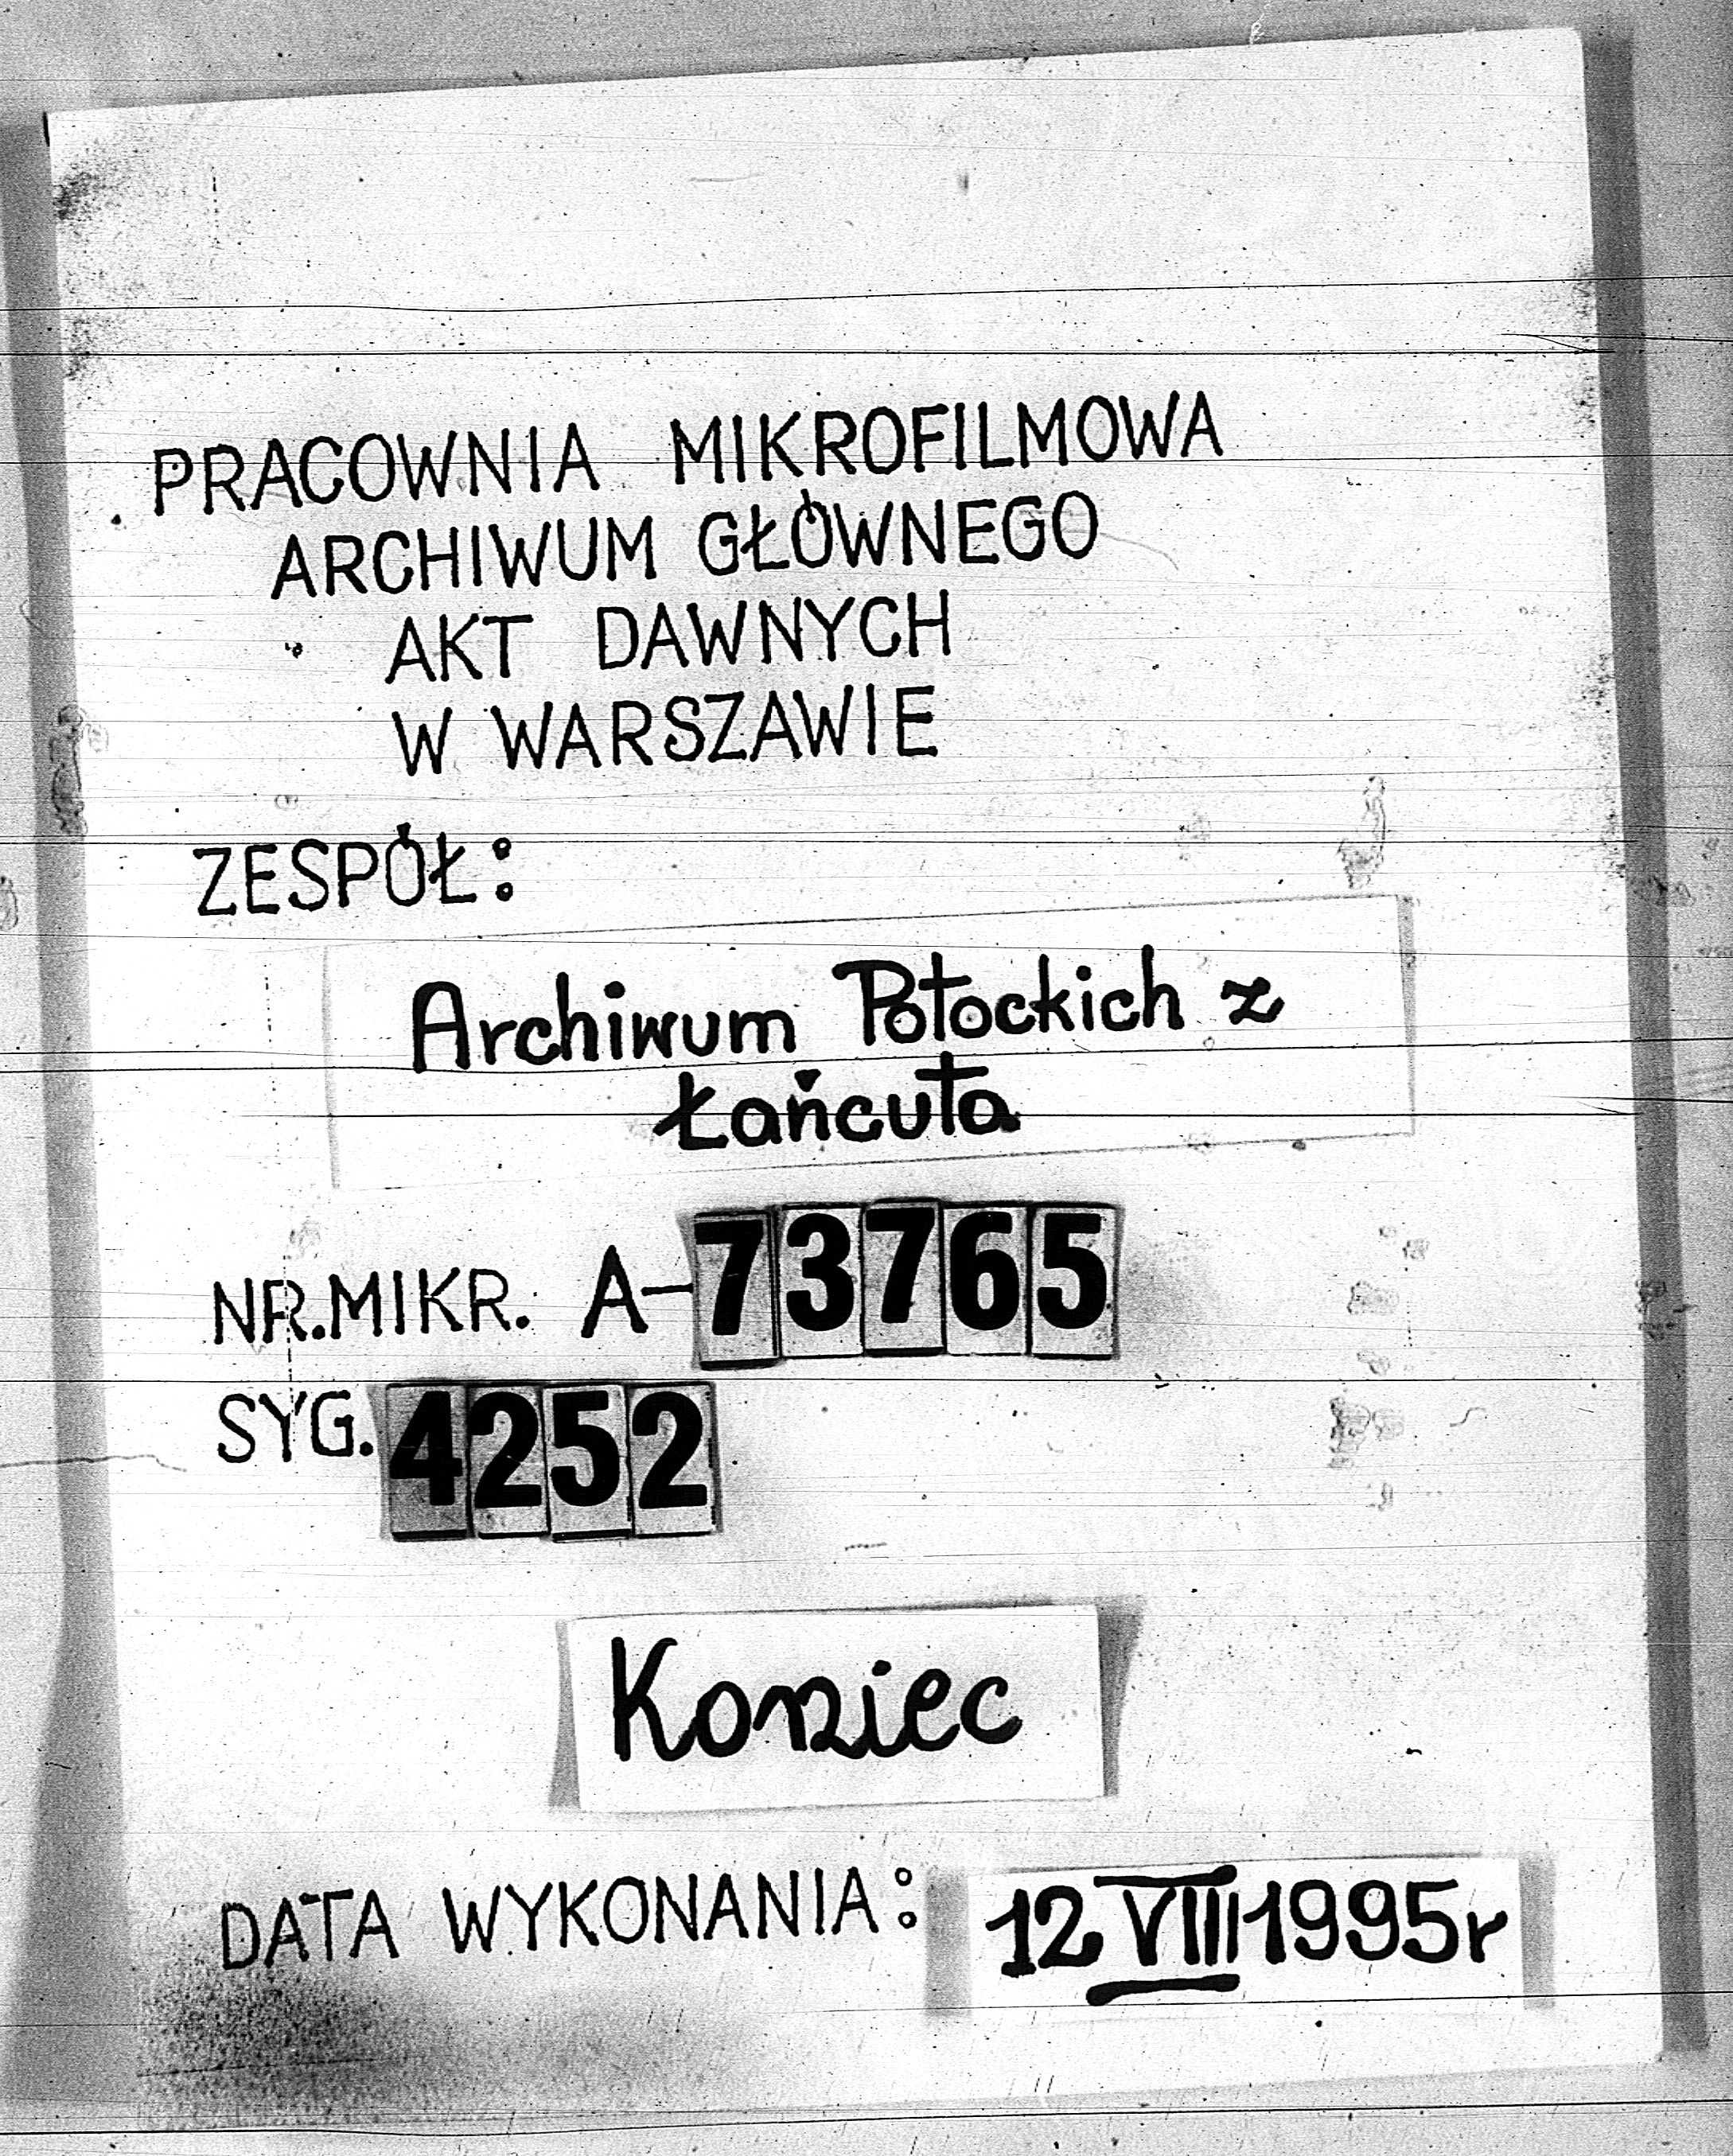 PRACOWNIA MIKROFILMOWA
ARCHIWUM GŁÓWNEGO
AKT DAWNYCH
W WARSZAWIE
ZESPÓŁ:
Archiwum Potockich z
Łańcuta
NR.MIKR. A-73765
SYG. 4252
Koniec
DATA WYKONANIA: 12 VIII 1995r